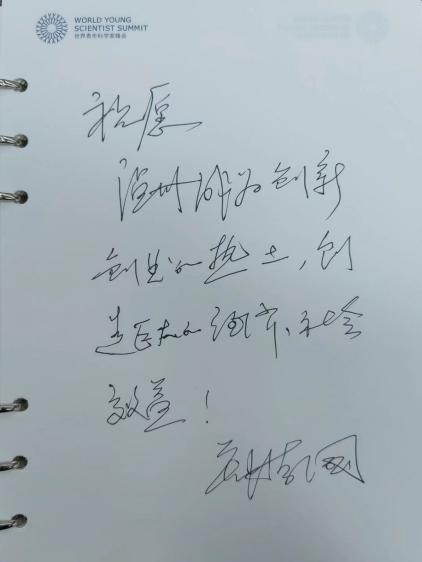 WORLD YOUNG
SCIENTIST SUMMIT
世界青年科学家峰会
祝愿
温州成为创新
创业的热土，创
造巨大的经济、社会
效益！